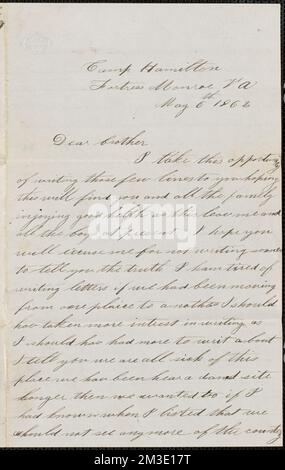 Camp Hamilton
Fortress Monroe Va
May 6th 1862
Dear brother
I take this opportuny
of writing those few lines to you hoping
this will find you and all the family
injoying good helth as this leve me and
all the boys at present I hope you
will excuse me for not writing sooner
to tell you the truth I ham tired of
writing letters if we had been moving
from one plaice to another I should
hav taken more intrest in writing as
I should hav had more to writ about
I tell you we are all sick of this
place we hav been hear a dand site
longer then we wanted to if I
had known when I listed that we
should not see any more of the country
alamy
Image ID: 2M3E17T
www.alamy.com